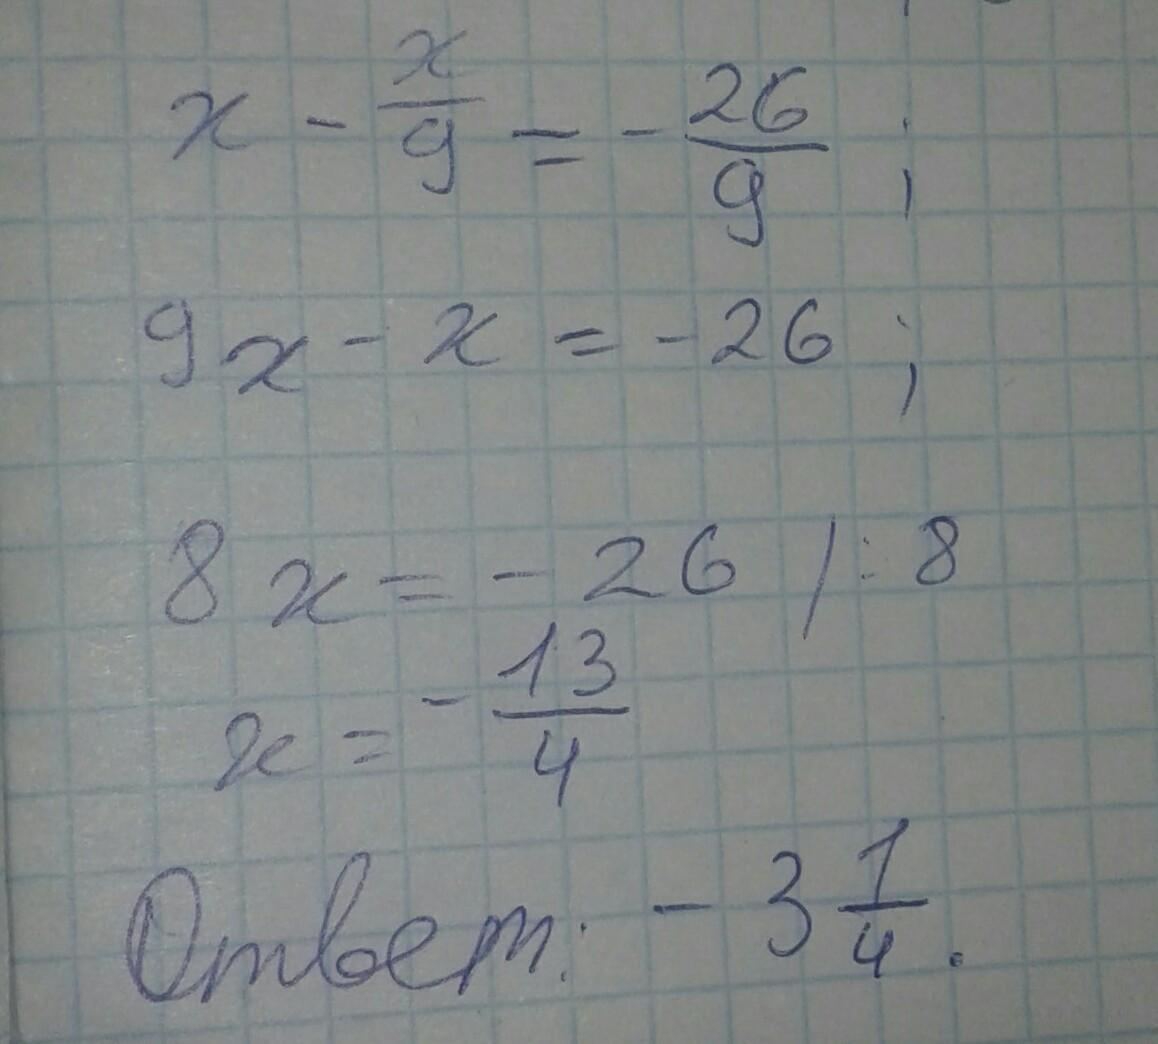 x - x/9 = - 26/9 ;
9x - x = -26 ;
8x = - 26 / : 8
x = - 13/4
Ответ: - 3 1/4 .